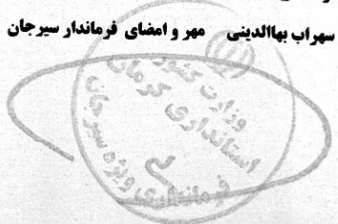 سهراب بهاالدینی مهر و امضای فرماندار سیرجان
وزارت کشور
استانداری کرمان
فرمانداری ویژه سیرجان